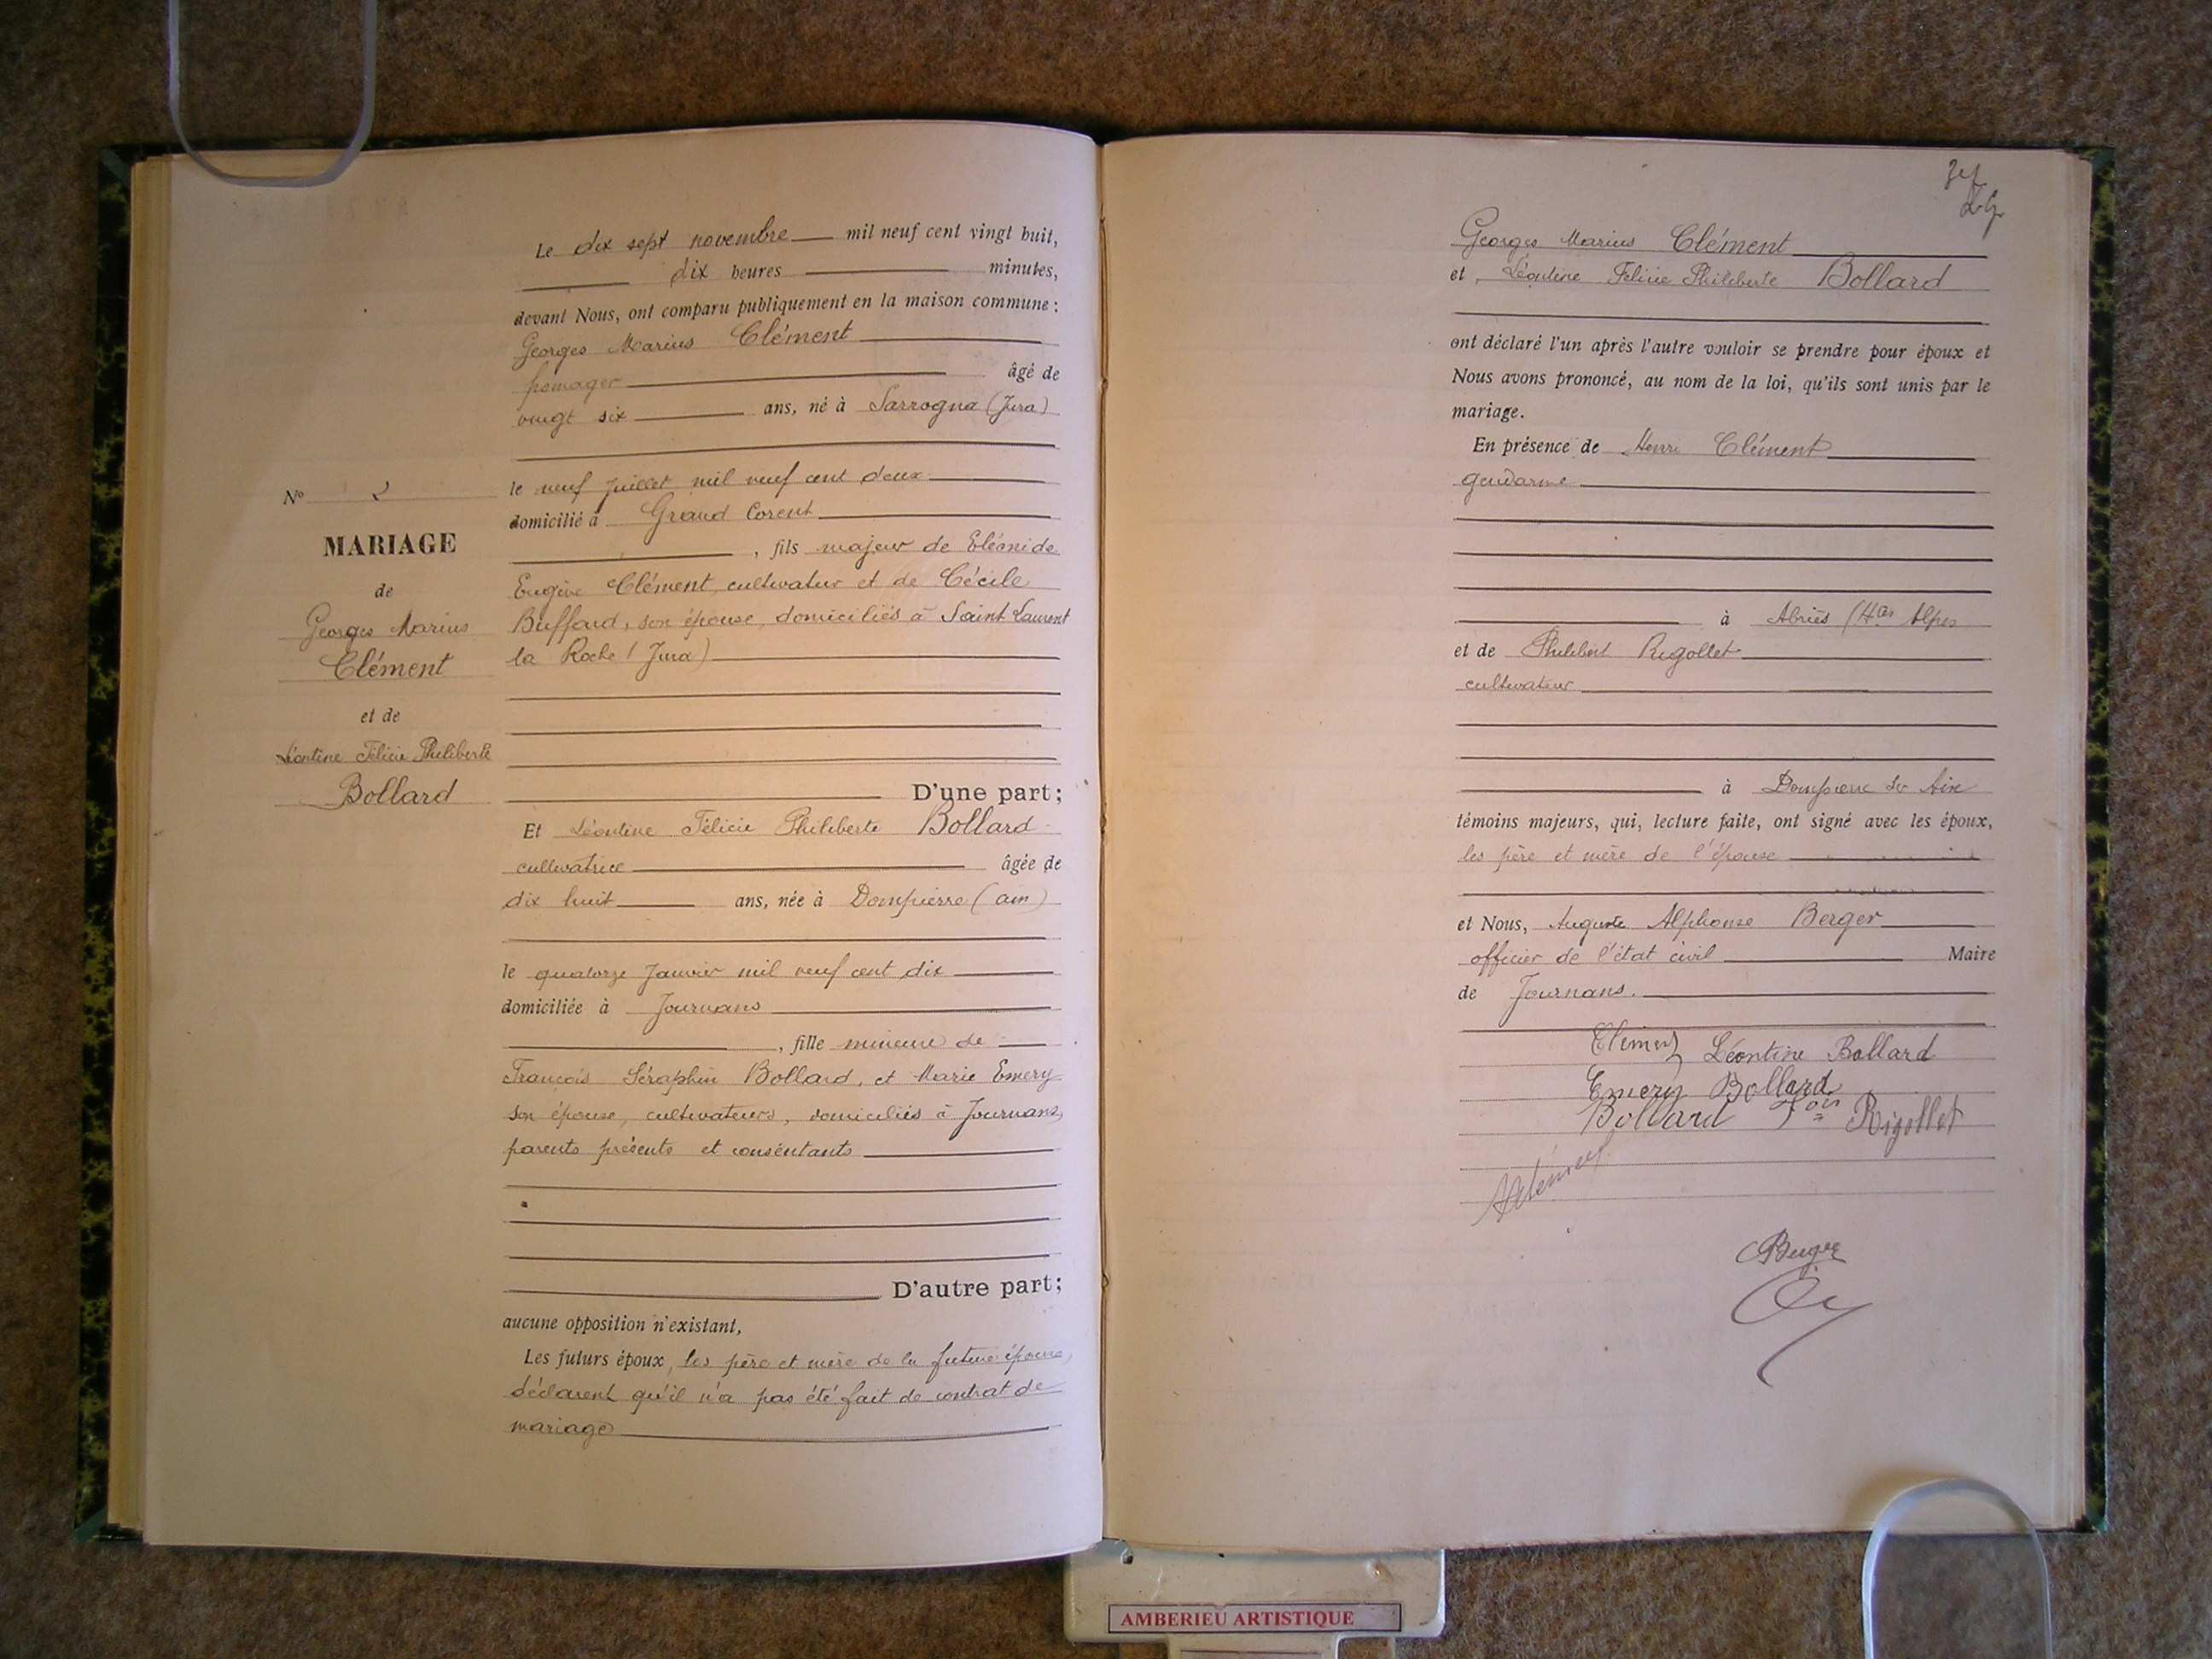 Le dix sept novembre mil neuf cent vingt huit,
dix heures minutes,
devant Nous, ont comparu publiquement en la maison commune :
Georges Marius Clément
fromager âgé de
vingt six ans, né à Sarrogna (Jura)
le neuf juillet mil neuf cent deux
domicilié à Grand Corent
, fils majeur de Eléonide
Eugène Clément, cultivateur et de Cécile
Buffard, son épouse, domiciliés à Saint Laurent
la Roche (Jura)
D'une part ;
Et Léontine Félicie Philiberte Bollard
cultivatrice âgée de
dix huit ans, née à Dompierre (ain)
le quatorze Janvier mil neuf cent dix
domiciliée à Journans
, fille mineure de
François Séraphin Bollard, et Marie Emery
son épouse, cultivateurs, domiciliés à Journans,
parents présents et conséntants
D'autre part ;
aucune opposition n'existant,
Les futurs époux, les père et mère de la future épouse,
déclarent qu'il n'a pas été fait de contrat de
mariage
N° 2
MARIAGE
de
Georges Marius
Clément
et de
Léontine Félicie Philiberte
Bollard
Georges Marius Clément
et Léontine Félicie Philiberte Bollard
ont déclaré l'un après l'autre vouloir se prendre pour époux et
Nous avons prononcé, au nom de la loi, qu'ils sont unis par le
mariage.
En présence de Henri Clément
gendarme
à Abriès (Htes Alpes
et de Philibert Rigollet
cultivateur
à Dompierre sr Ain
témoins majeurs, qui, lecture faite, ont signé avec les époux,
les père et mère de l'épouse
et Nous, Auguste Alphonse Berger
officier de l'état civil Maire
de Journans.
Clément Léontine Bollard
Emery Bollard
Bollard Fois Rigollet
HClément
Berger
AMBERIEU ARTISTIQUE